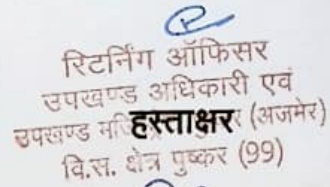 रिटर्निंग ऑफिसर
उपखण्ड अधिकारी एवं
उपखण्ड हस्ताक्षर (अजमेर)
वि.स. क्षेत्र पुष्कर (99)